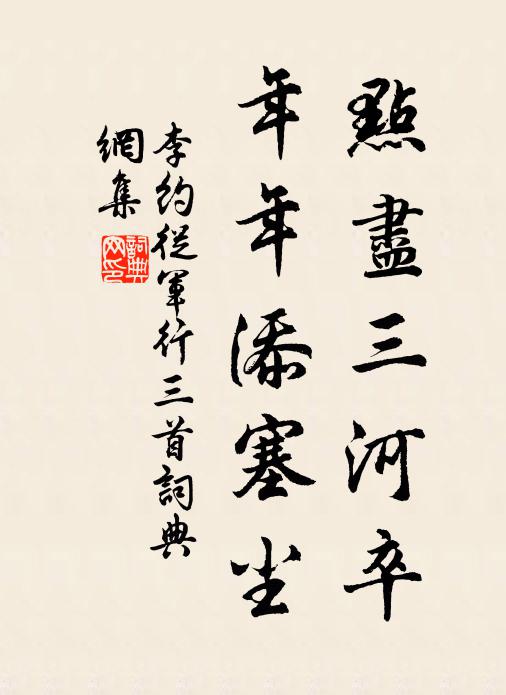 點盡三河卒
年年添塞尘
李約從軍行三首詞典
網集
詞典
网印